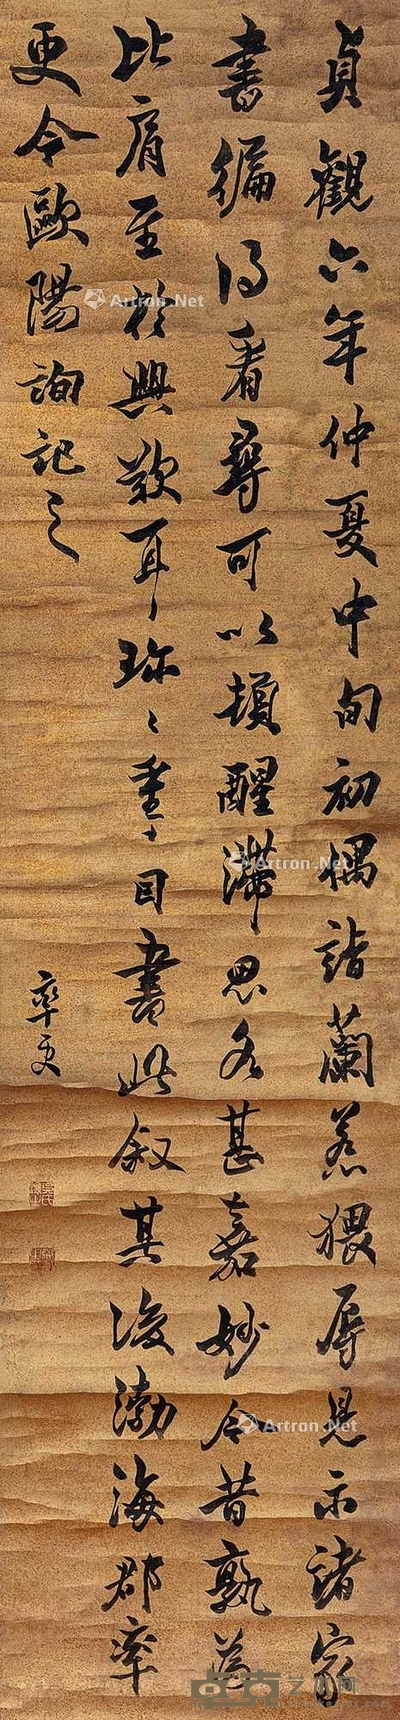 貞觀六年仲夏中旬初偶詣蘭若猥辱見示諸家
書徧得看尋可以損醒滯思各甚嘉妙今昔孰為
比肩至於興歎耳珎〻重〻因書此叙其後渤海郡率
更令歐陽詢記之
率更
Artron.Net
Artron.Net
Artron.Net